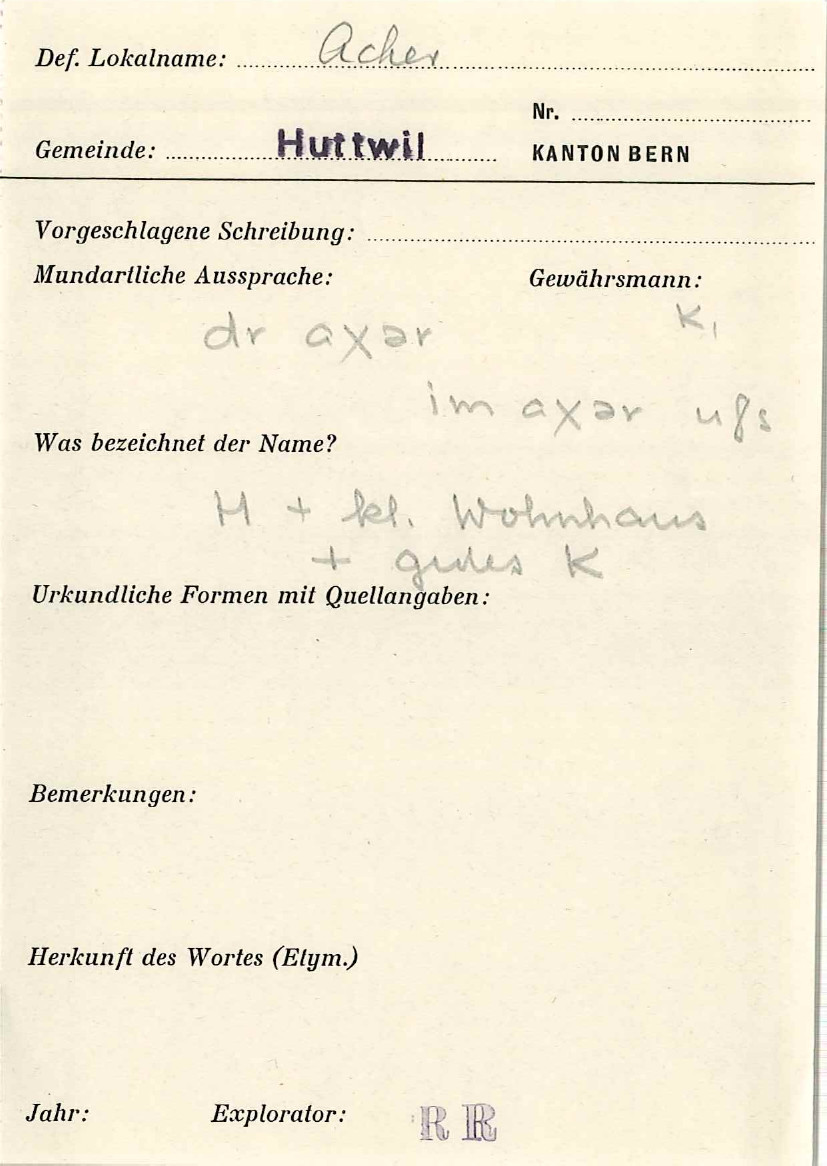 Def. Lokalname: Acher
Nr.
Gemeinde: Huttwil KANTON BERN
Vorgeschlagene Schreibung:
Mundartliche Aussprache: Gewährsmann:
dr axər K1
im axər ufs
Was bezeichnet der Name?
H + kl. Wohnhaus
+ gutes K
Urkundliche Formen mit Quellangaben:
Bemerkungen:
Herkunft des Wortes (Etym.)
Jahr: Explorator: RR